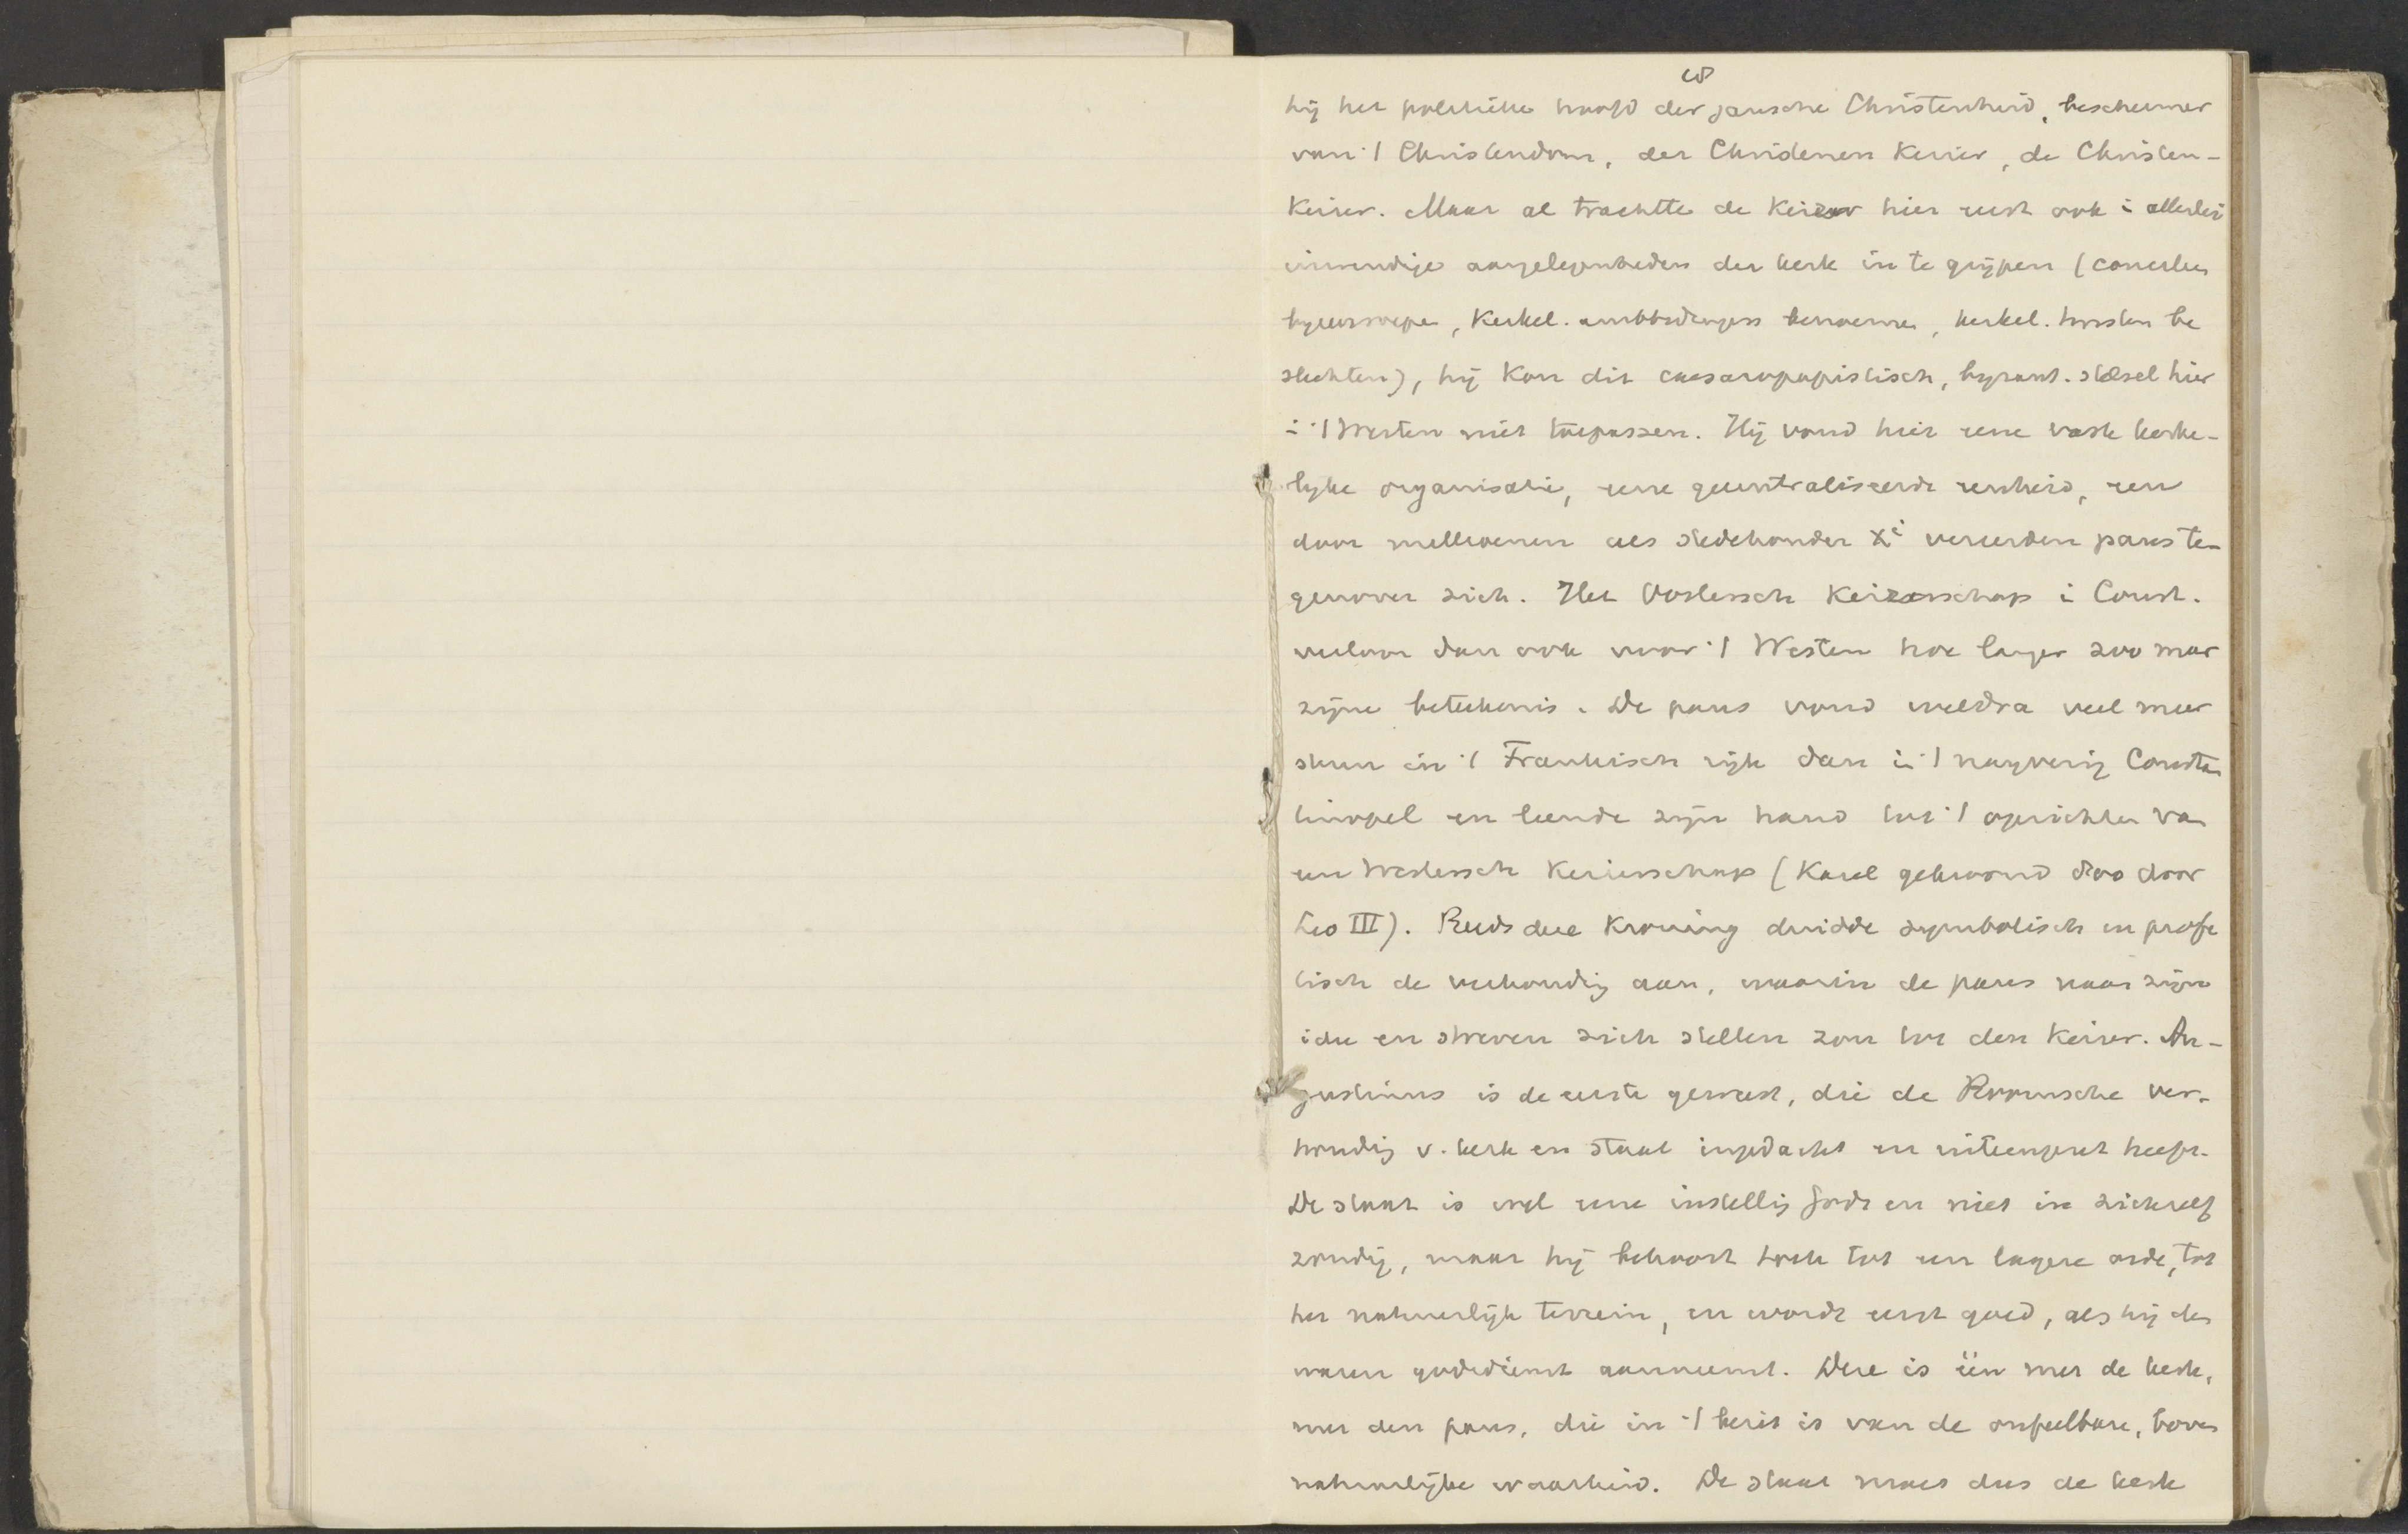 hij het politieke hoofd der gansche Christenheid, beschermer
van 't Christendom, der Christenen Keizer, de Christen-
Keizer. Maar al trachtte de Keizer hier eerst ook i allerlei
inwendige aangelegenheden der kerk in te grijpen (concilies
byeenroepen, Kerkel. ambtsdragers benoemen, kerkel. twisten be
slechten), hij kon dit caesaropapistisch, byzant. stelsel hier
i 't Westen niet toepassen. Hij vond hier eene vaste kerke-
lyke organisatie, eene gecentraliseerde eenheid, een
door millioenen als stedehouder Xi vereerden paus te-
genover zich. Het Oostersch Keizerschap i Const.
verloor dan ook voor 't Westen hoe langer zoo meer
zijne beteekenis. De paus vond weldra veel meer
steun in 't Frankisch rijk dan in 't naijverig Constan
tinopel en leende zijn hand tot 't oprichten van
een Westersch Keizerschap (Karel gekroond 800 door
Leo III). Reeds deze Kroning duidde symbolisch en profe
tisch de verhoudig aan, waarin de paus naar zijn
idee en streven zich stellen zou tot den Keizer. Au-
gustinus is de eerste geweest, die de Roomsche ver-
houdig v. kerk en staat ingedacht en uiteengezet heeft.
De staat is wel eene instellig Gods en niet in zichzelf
zondig, maar hij behoort toch tot een lagere orde, tot
het natuurlijk terrein, en wordt eerst goed, als hij den
waren godsdienst aanneemt. Deze is één met de kerk,
met den paus, die in 't bezit is van de onfeilbare, boven
natuurlijke waarheid. De staat moet dus de kerk